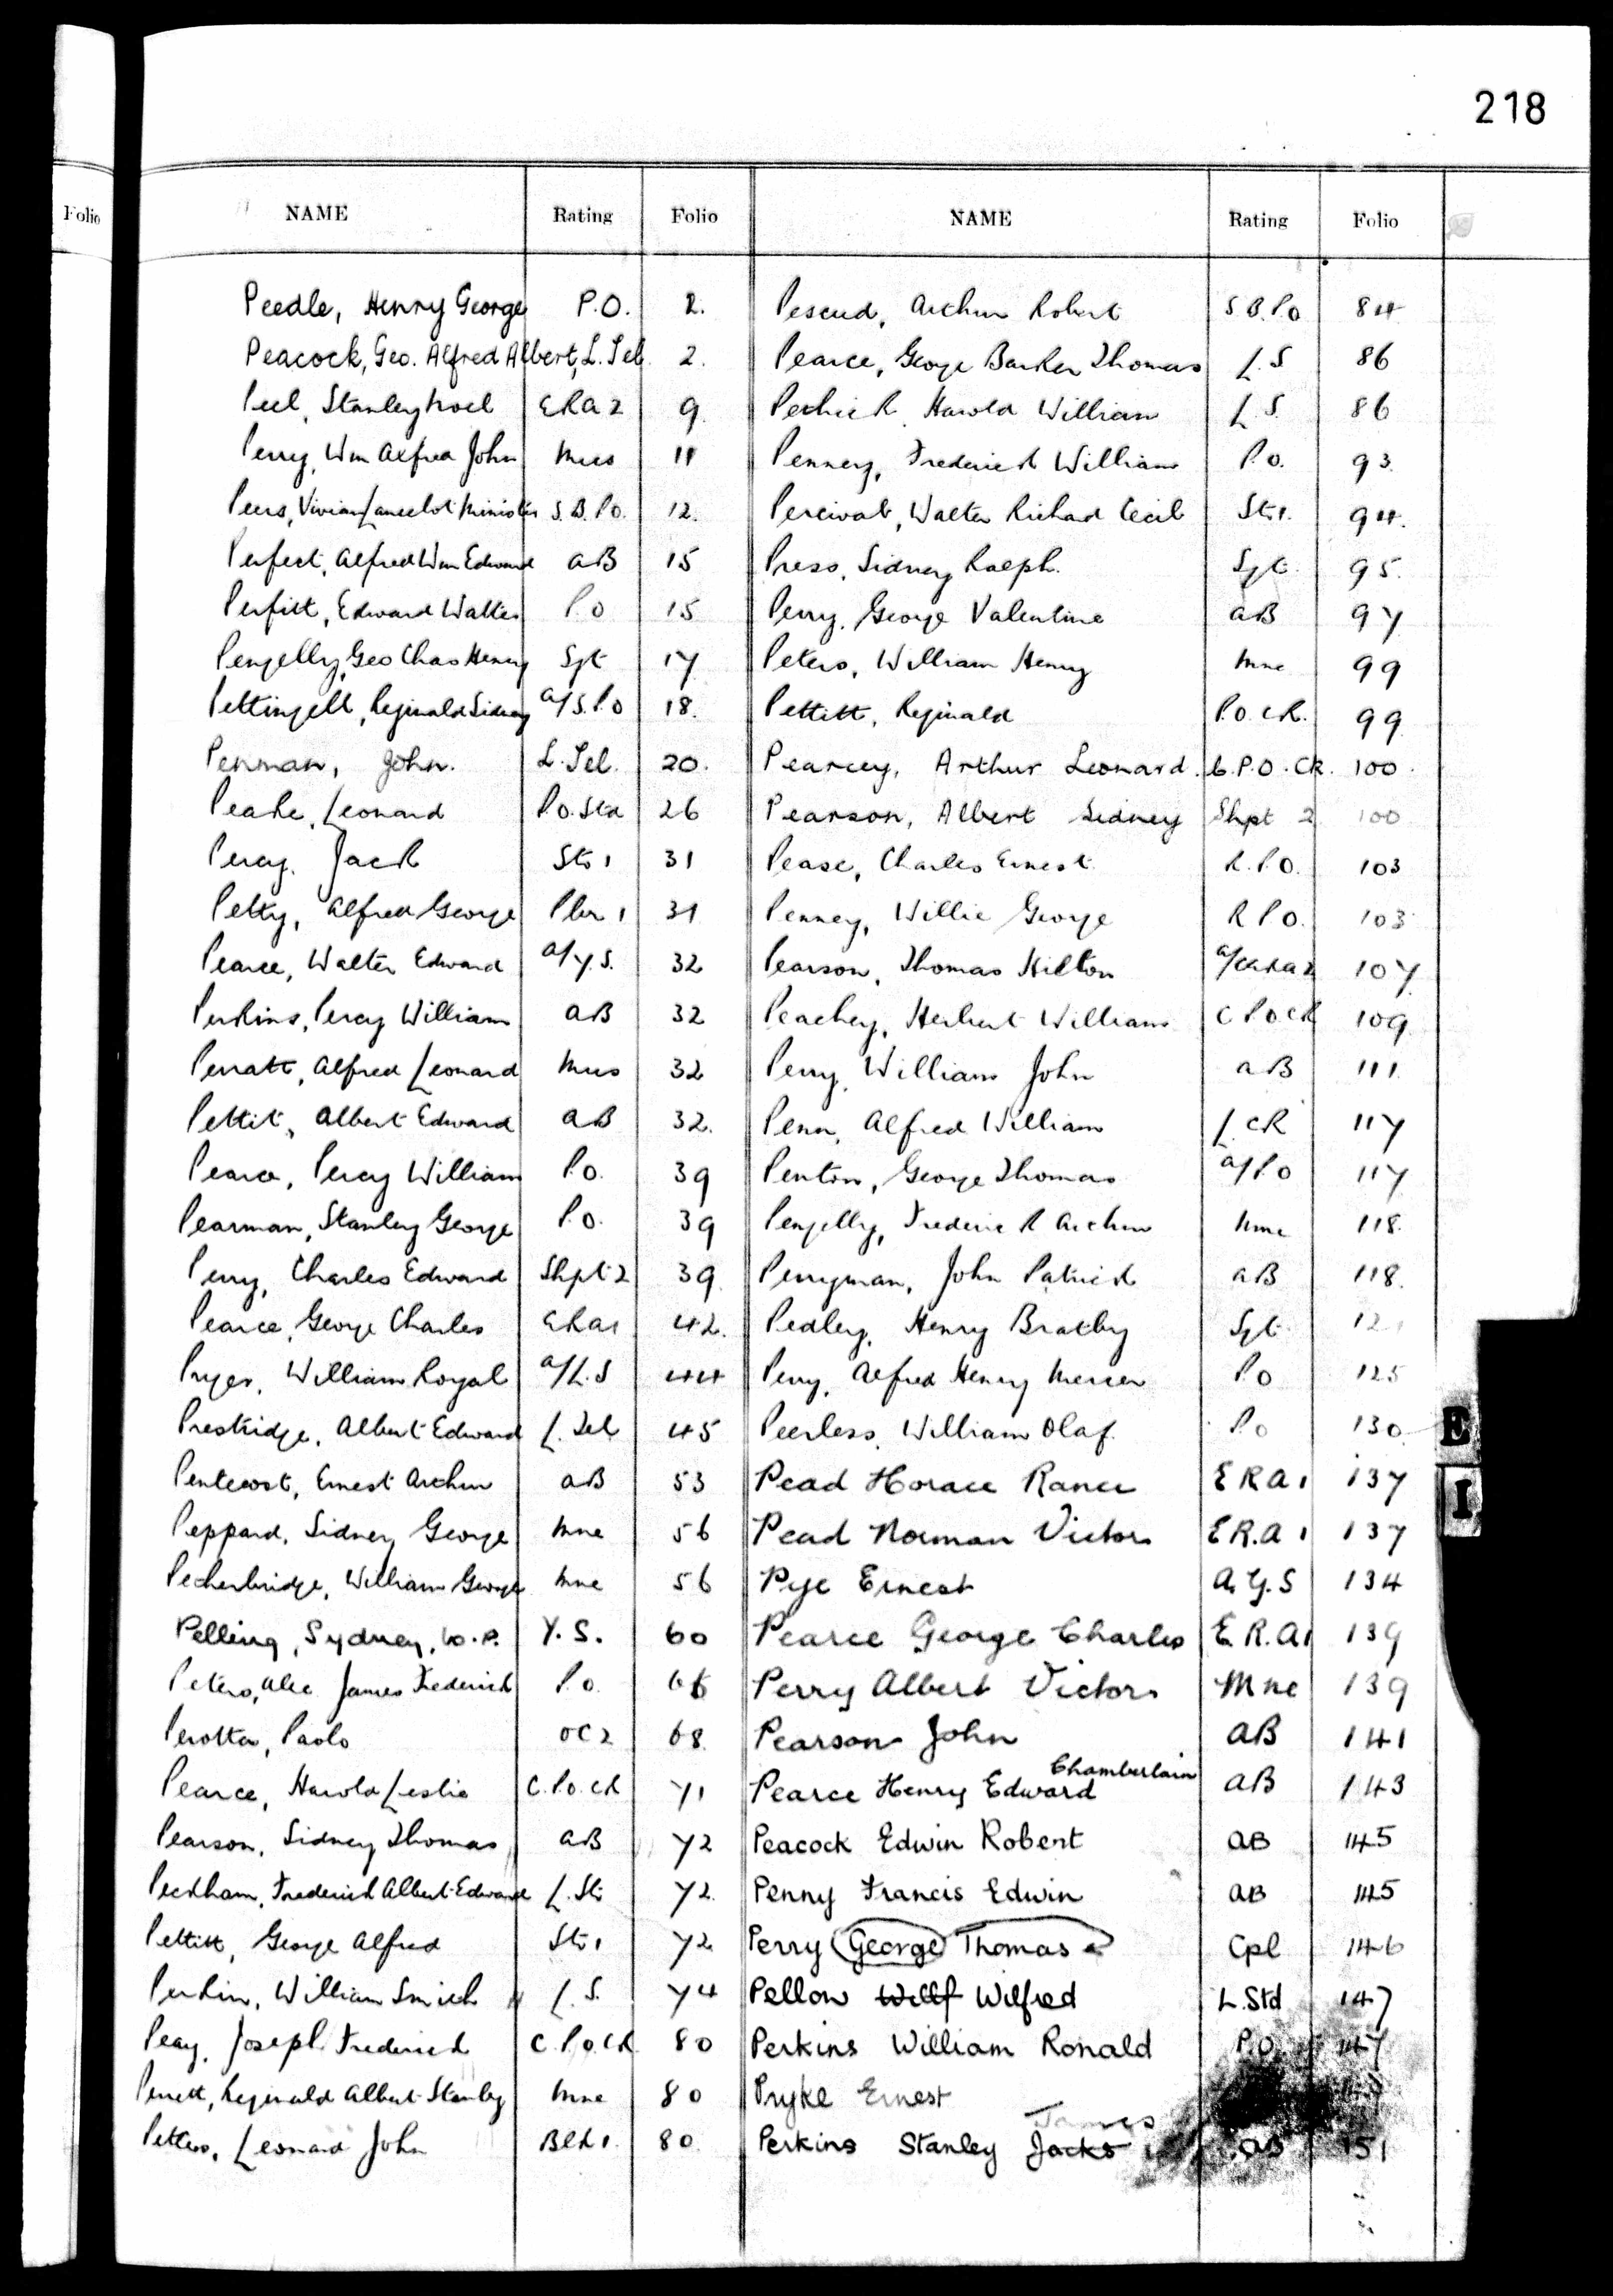 218
Folio
NAME Rating Folio
Peedle, Henry George P.O. 2.
Peacock, Geo. Alfred Albert, L. Tel. 2.
Peel, Stanley Noel ERA 2 9.
Perry, Wm Alfred John Mus 11
Peers, Vivian Lancelot Minister S.B.P.O. 12.
Perfect, Alfred Wm Edward AB 15
Perfitt, Edward Walter P.O 15
Pengelly, Geo Chas Henry Sgt 17
Pettingell, Reginald Sidney A/S.P.O 18.
Penman, John. L. Tel. 20.
Peake, Leonard P.O. Std 26
Percy, Jack Sto 1 31
Petty, Alfred George Plr 1 31
Pearce, Walter Edward A/Y.S. 32
Perkins, Percy William AB 32
Perratt, Alfred Leonard Mus 32
Pettit, Albert Edward AB 32.
Pearce, Percy William P.O. 39
Pearman, Stanley George P.O. 39
Perry, Charles Edward Shpt 2 39
Pearce, George Charles ERA1 42.
Pryer, William Royal A/L.S 44
Prestridge, Albert Edward L. Tel 45
Pentecost, Ernest Arthur AB 53
Peppard, Sidney George Mne 56
Petherbridge, William George Mne 56
Pelling, Sydney, W.P. Y.S. 60
Peters, Alec James Frederick P.O. 66
Perotta, Paolo OC2 68.
Pearce, Harold Leslie C.P.O. CK 71
Pearson, Sidney Thomas AB 72
Peckham, Frederick Albert Edward L. Sto 72.
Pettitt, George Alfred Sto 1 72
Perkin, William Smith L.S. 74
Peay, Joseph Frederick C.P.O. CK 80
Perrett, Reginald Albert Stanley Mne 80
Petters, Leonard John 80.
NAME Rating Folio
Pescud, Arthur Robert S.B.P.O 84
Pearce, George Barker Thomas L.S 86
Pethick, Harold William L.S. 86
Penney, Frederick William P.O. 93.
Percival, Walter Richard Cecil Sto 1. 94.
Press, Sidney Ralph. Sgt. 95.
Perry, George Valentine AB 97
Peters, William Henry Mne 99
Pettitt, Reginald P.O. CK. 99
Pearcey, Arthur Leonard. C.P.O. CK. 100.
Pearson, Albert Sidney Shpt 2 100
Pease, Charles Ernest. R.P.O. 103
Penney, Willie George R P O. 103
Pearson, Thomas Hilton 107
Peachey, Herbert William C P.O. CK 109
Perry, William John AB 111.
Penn, Alfred William L. CK 117
Penton, George Thomas A/P.O 117
Pengelly, Frederick Arthur Mne 118.
Perryman, John Patrick AB 118.
Pedley, Henry Bratby Sgt.
Perry, Alfred Henry Mercer P.O 125
Peerless, William Olaf. P.O 130
Pead Horace Rance E R A 1 137
Pead Norman Victor E R.A 1 137
Pye Ernest A.Y.S 134
Pearce George Charles E.R.A1 139
Perry Albert Victor Mne 139
Pearson John AB 141
Pearce Henry Edward Chamberlain AB 143
Peacock Edwin Robert AB 145
Penny Francis Edwin AB 145
Perry George Thomas Cpl 146
Pellow Willf Wilfred L.Std 147
Perkins William Ronald P.O. 147
Pryke Ernest
Perkins Stanley Jacks James AB 151
E
I